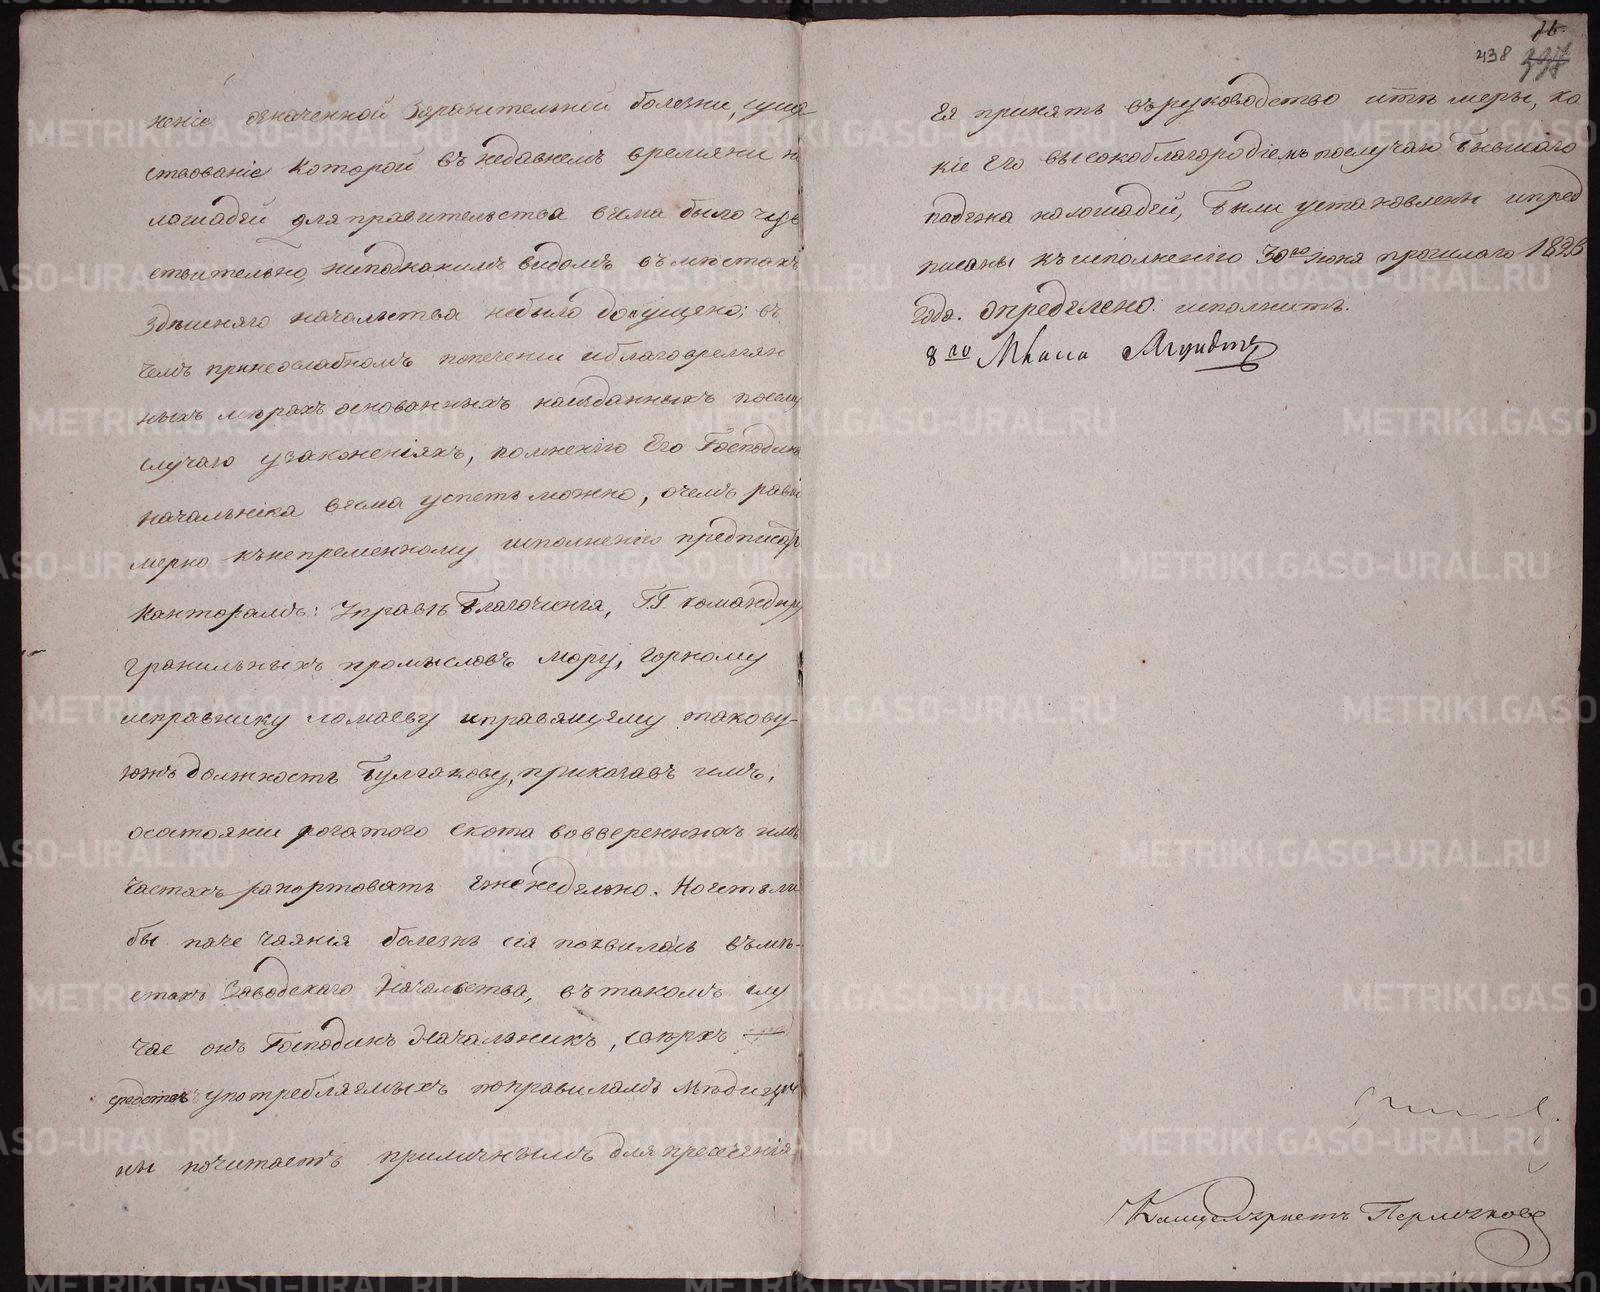 неніе означенной заразительной болезни, суще
ствованіе которой въ недавнемъ времяни на
лошадей для правительства весма было чув
ствительно, ниподкакимъ видомъ въ местахъ
здешняго начальства небыло допущено; въ
чемъ принеослабномъ попечении иблаговремян
ныхъ мерахъ основанныхъ наизданныхъ посему
случаю узаконеніяхъ, помненію Его Господина
начальника весма успеть можно, очемъ равно
мерно къ непременному исполненію предписать
канторамъ: Управе Благочинія, Г.Г. командиру
гранильныхъ промысловъ Мору, Горному
исправнику Ломаеву и правящему такову-
южъ должность Булгакову, приказавъ имъ,
осостояніи рогатого скота вовверенныхъ имъ
частяхъ рапортовать еженедельно. Ноестьли
бы паче чаянія болезнь сія появилась въ ме-
стахъ Заводскаго Начальства, въ такомъ слу
чае онъ Господинъ Начальникъ, сверхъ
средствъ употребляемыхъ поправиламъ Медици
ны почитаетъ приличнымъ для пресеченія
438
Ея принять въ руководство и те меры, ка
кіе Его высокоблагородіемъ послучаю бывшаго
падежа налошадей, были установлены ипред
писаны къ исполненію 30го Іюня прошлаго 1825
года. Определено: исполнить.
8го
Канцеляристъ Пермочковъ